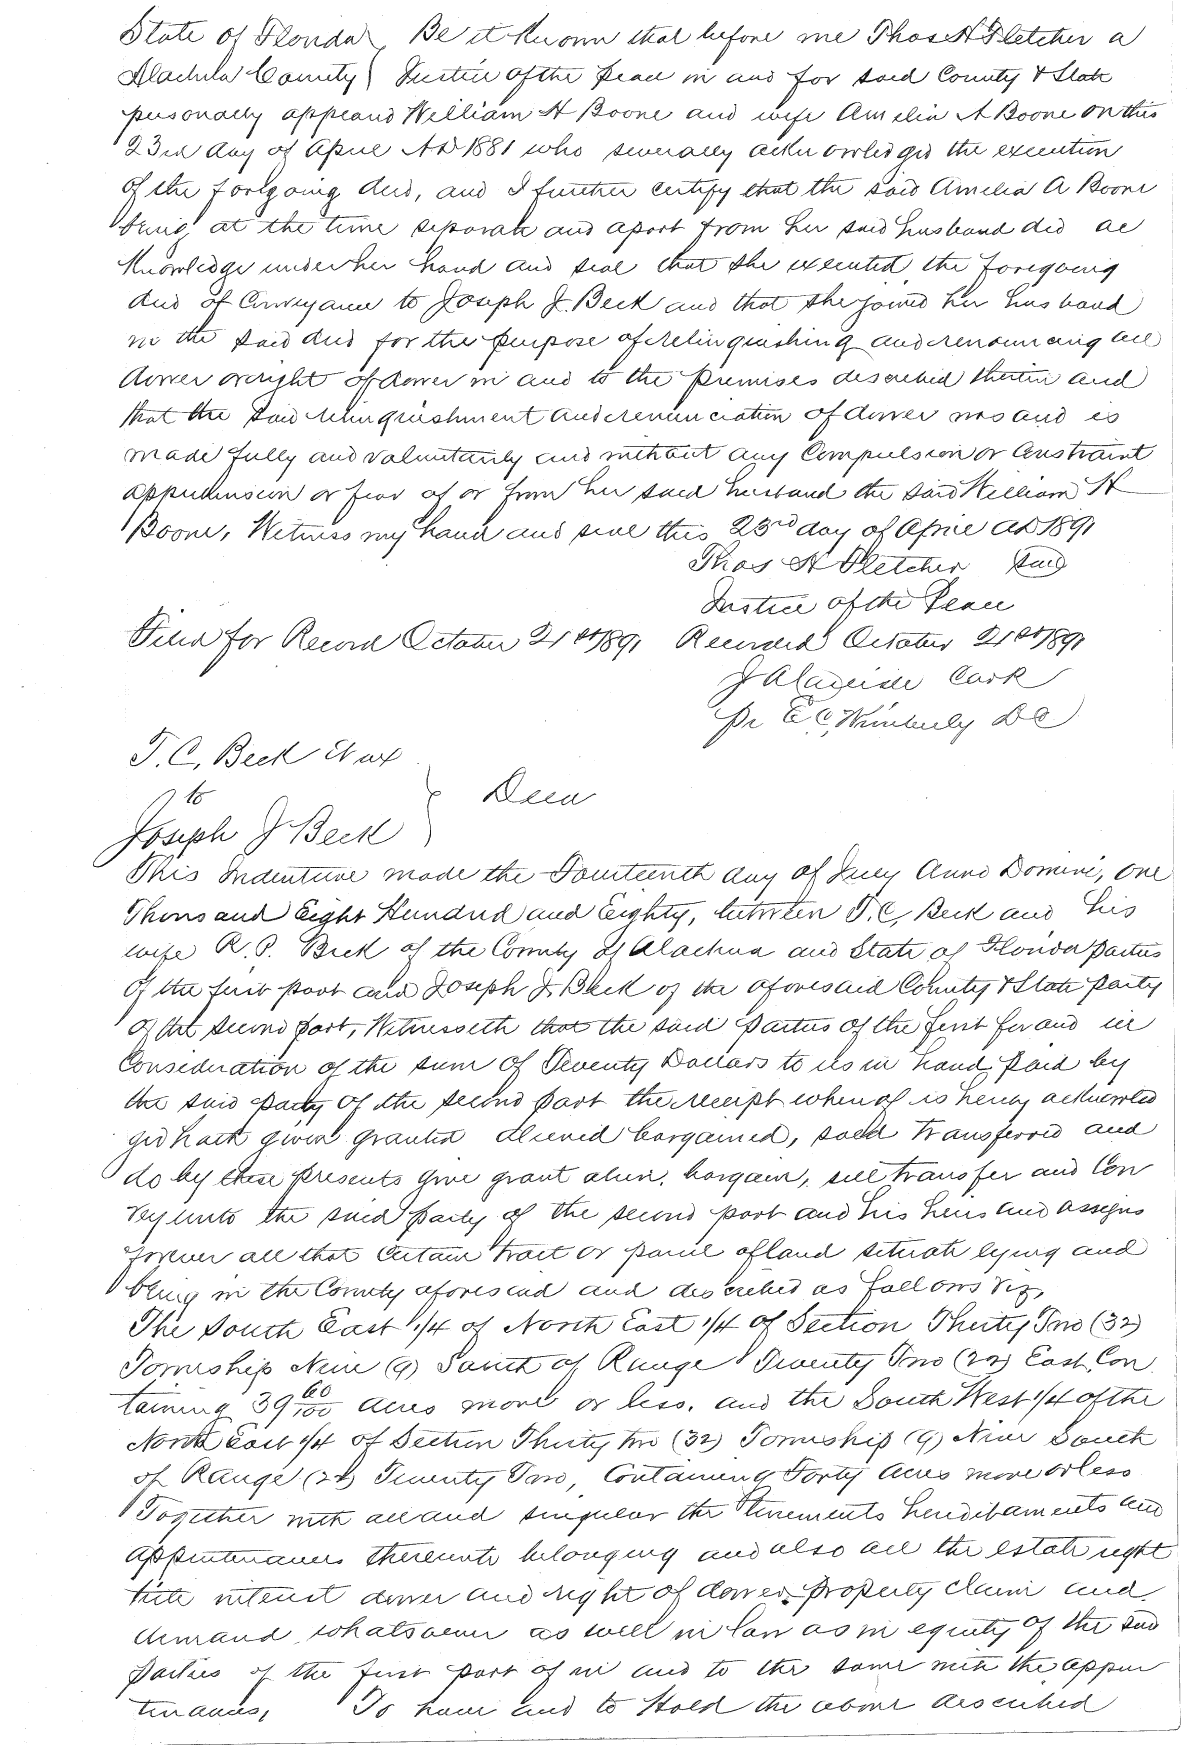 State of Florda } Be it Known that before me Thos H Fletcher a
Alachua County } Justice of the Peace in and for said County & State
personally appeard William H Boone and wife Amelia A Boone on this
23rd day of April AD 1881 who severally acknowledged the execution
of the forlgoing deed, and I further certify that the said Amelia A Boone
being at the time separate and apart from her said husband did ac
Knowledge under her hand and seal that she executed the foregoing
deed of Conveyance to Joseph J. Beck and that she joined her husband
in the said deed for the purpose of relinquishing and renouncing all
dower or right of dower in and to the premises described therein and
that the said relinquishment and renunciation of dower was and is
made fully and voluntarily and without any Compulsion or Constraint
apprehension or fear of or from her said husband the said William H
Boone, Witness my hand and seal this 23rd day of April AD 1891
Thos H Fletcher Seal
Justice of the Peace
Filed for Record October 21st 1891 Recorded October 21st 1891
J A Clerk
Pr E C, Wimberly DC
T. C, Beck & ux
to } Deed
Joseph J Beck
This Indenture made the Fourteenth day of July Anno Domini, one
Thousand Eight Hundred and Eighty, between T. C, Beck and his
wife R. P. Beck of the County of Alachua and State of Florida parties
of the first part and Joseph J. Beck of the aforesaid County & State party
of the second part, Witnesseth that the said parties of the first for and in
Consideration of the sum of Seventy Dollars to us in hand paid by
the said party of the second part the receipt whereof is hereby acknowled
ged hath given granted aliened bargained, sold transferred and
do by these presents give grant alien, bargain, sell transfer and Con
vey unto the said party of the second part and his heirs and assigns
forever all that certain tract or parcel of land situate lying and
being in the County aforesaid and described as follows viz,
The South East 1/4 of North East 1/4 of Section Thirty Two (32)
Township Nine (9) South of Range Twenty Two (22) East, Con
taining 39 60/100 acres more or less, and the South West 1/4 of the
North East 1/4 of Section Thirty two (32) Township (9) Nine South
of Range (22) Twenty Two, Containing Forty acres more or less
Together with all and singular the tenements hereditaments and
appurtenances thereunto belonging and also all the estate right
title interest dower and right of dower, property claim and
demand whatsoever as well in law as in equity of the said
parties of the first part of in and to the same with the appur
tenances, To have and to Hold the above described